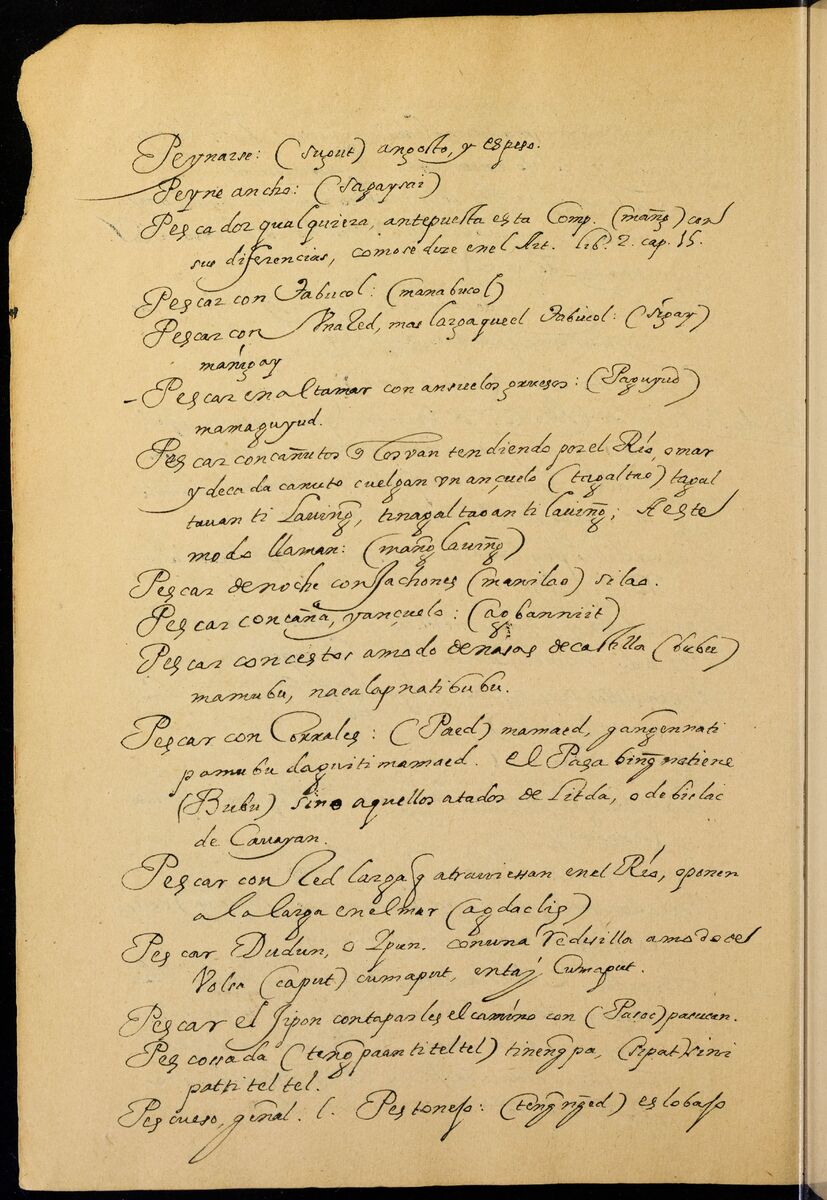 Peynarse: (sugut) angosto, y espeso.
Peyne ancho: (sagaysai)
Pescador qualquiera, antepuesta esta Comp. (mang̃) con
sus diferencias, como se dize en el Art. lib. 2. cap. 15.
Pescar con Tabucol: (manabucol)
Pescar con Vna Red, mas larga que el Tabucol: (sigay)
manigay
Pescar en al tamar con ansuelos gruesos: (Paguyud)
mamaguyud.
Pescar con cañutos q̃ los van tendiendo por el Rio, o mar
y de cada canuto cuelgan vn ançuelo (tagaltao) tagal
tauan ti Lauing̃, tinagaltaoan ti lauing̃; A este
modo llaman: (mang̃lauing̃)
Pescar de noche con Jachones (manilao) silao.
Pescar con caña, y ançuelo: (agbanniit)
Pescar con cestos a modo de nasas de castilla (bubu)
mamubu, nacalap nati bubu.
Pescar con Corrales: (Paed) mamaed, gang̃ennati
pamubu daguiti mamaed. el Pasa bing̃ na tiene
(Bubu) sino aquellos atados de Litda, o de bislac
de Cauayan.
Pescar con Red larga q̃ atraviessan en el Rio, o ponen
a la larga en el mar (agdaclis)
Pescar Dudun, o Ypun. con una redesilla a modo de
Volsa (caput) cumaput, entaj Cumaput.
Pescar el Jipon con taparles el camino con (Pasoc) pasucan.
Pescossada (teng̃paan ti teltel) tineng̃pa, (sipat) sini
patti teltel.
Pescueso, gen̄al. l. Pestoneso: (teng̃ng̃ed) es lo baso